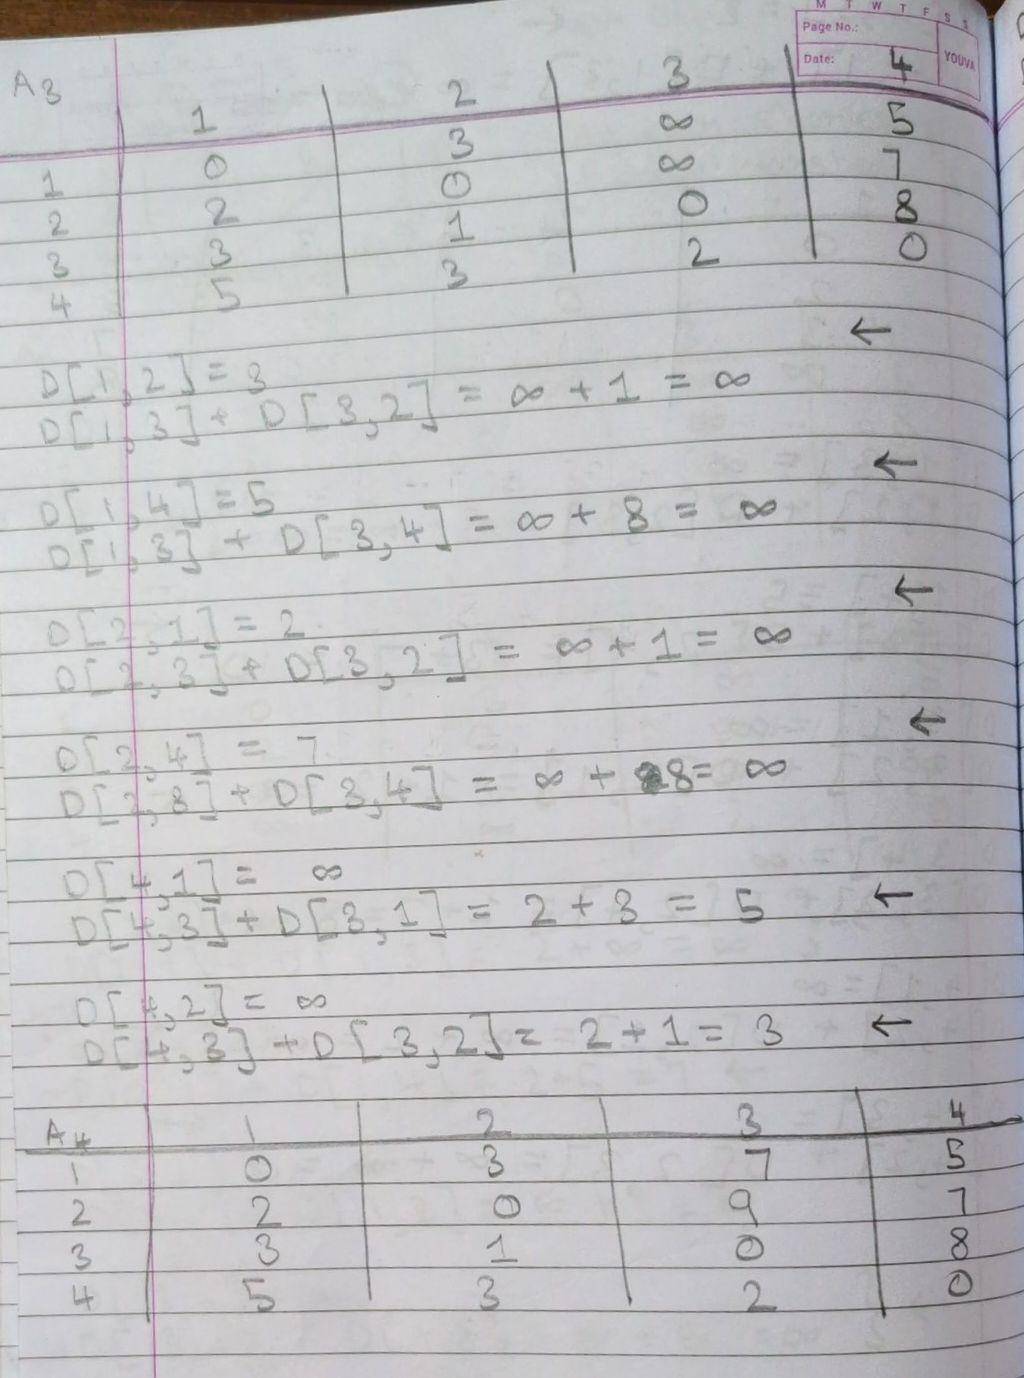 M T W T F S S
Page No.:
Date: YOUVA
A3 1 2 3 4
1 0 3 ∞ 5
2 2 0 ∞ 7
3 3 1 0 8
4 5 3 2 0
D[1,2] = 3 ←
D[1,3] + D[3,2] = ∞ + 1 = ∞
D[1,4] = 5 ←
D[1,3] + D[3,4] = ∞ + 8 = ∞
D[2,1] = 2 ←
D[2,3] + D[3,2] = ∞ + 1 = ∞
D[2,4] = 7 ←
D[2,3] + D[3,4] = ∞ + 8 = ∞
D[4,1] = ∞
D[4,3] + D[3,1] = 2 + 3 = 5 ←
D[4,2] = ∞
D[4,3] + D[3,2] = 2 + 1 = 3 ←
A4 1 2 3 4
1 0 3 7 5
2 2 0 9 7
3 3 1 0 8
4 5 3 2 0